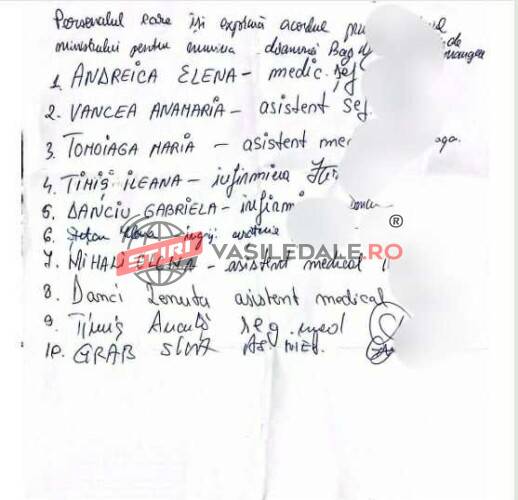 Personalul care își exprimă acordul
ministrului pentru munca doamnei
1. ANDREICA ELENA - medic șef
2. VANCEA ANAMARIA - asistent șef.
3. TOMOIAGA MARIA - asistent
4. TIMIȘ ILEANA - infirmiera
5. DANCIU GABRIELA - infirm
6. Ștefan
7. MIHALI ELENA - asistent medical
8. Danci Ionuta asistent medical
9. Timiș Anuța reg. med
10. GRAB AS. MED.
START VASILEDALE.RO ®